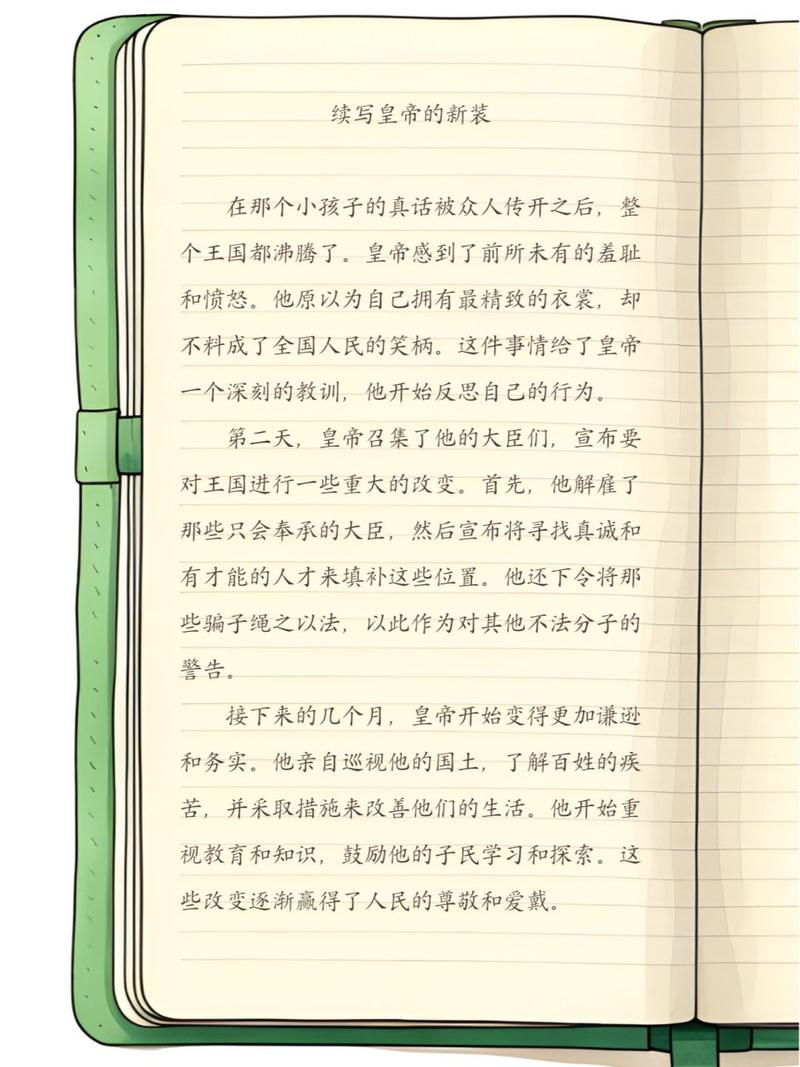 续写皇帝的新装
在那个小孩子的真话被众人传开之后，整
个王国都沸腾了。皇帝感到了前所未有的羞耻
和愤怒。他原以为自己拥有最精致的衣裳，却
不料成了全国人民的笑柄。这件事情给了皇帝
一个深刻的教训，他开始反思自己的行为。
第二天，皇帝召集了他的大臣们，宣布要
对王国进行一些重大的改变。首先，他解雇了
那些只会奉承的大臣，然后宣布将寻找真诚和
有才能的人才来填补这些位置。他还下令将那
些骗子绳之以法，以此作为对其他不法分子的
警告。
接下来的几个月，皇帝开始变得更加谦逊
和务实。他亲自巡视他的国土，了解百姓的疾
苦，并采取措施来改善他们的生活。他开始重
视教育和知识，鼓励他的子民学习和探索。这
些改变逐渐赢得了人民的尊敬和爱戴。